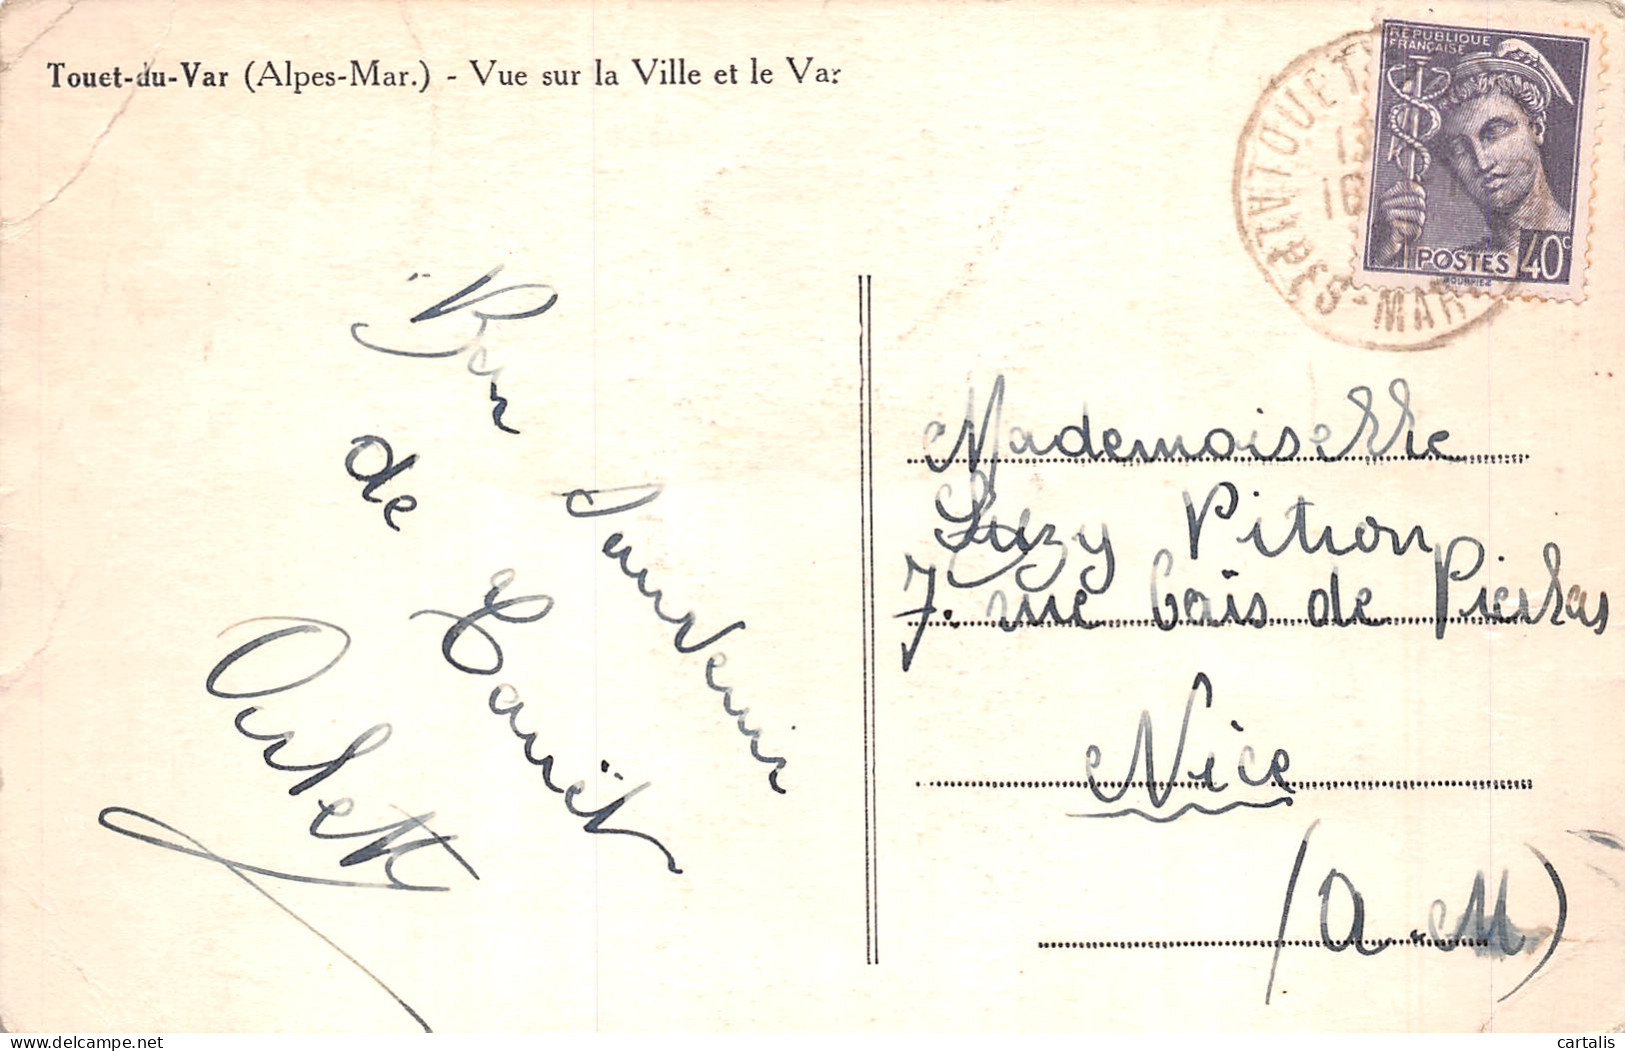 Touet-du-Var (Alpes-Mar.) - Vue sur la Ville et le Var
RÉPUBLIQUE
FRANÇAISE
POSTES 40c
TOUET
ALPES-MAR
Bon Souvenir
de
Arlette
Mademoiselle
Suzy Pitron
7. rue bois de
Nice
(A.-M)
delcampe.net
cartalis